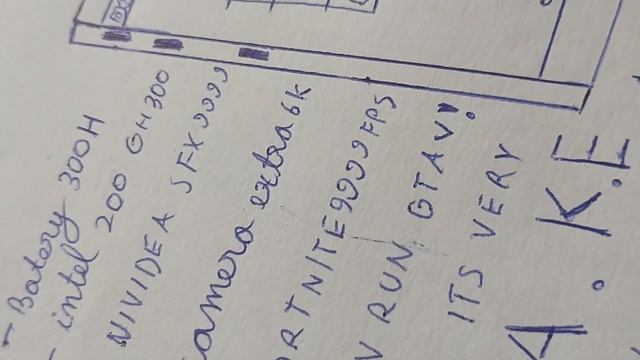 - Batery 300H
- intel 200 GH300
NIVIDEA SFX 9999
amera extra 6k
RTNITE 9999 FPS
V RUN GTA V!
ITS VERY
A.K.E